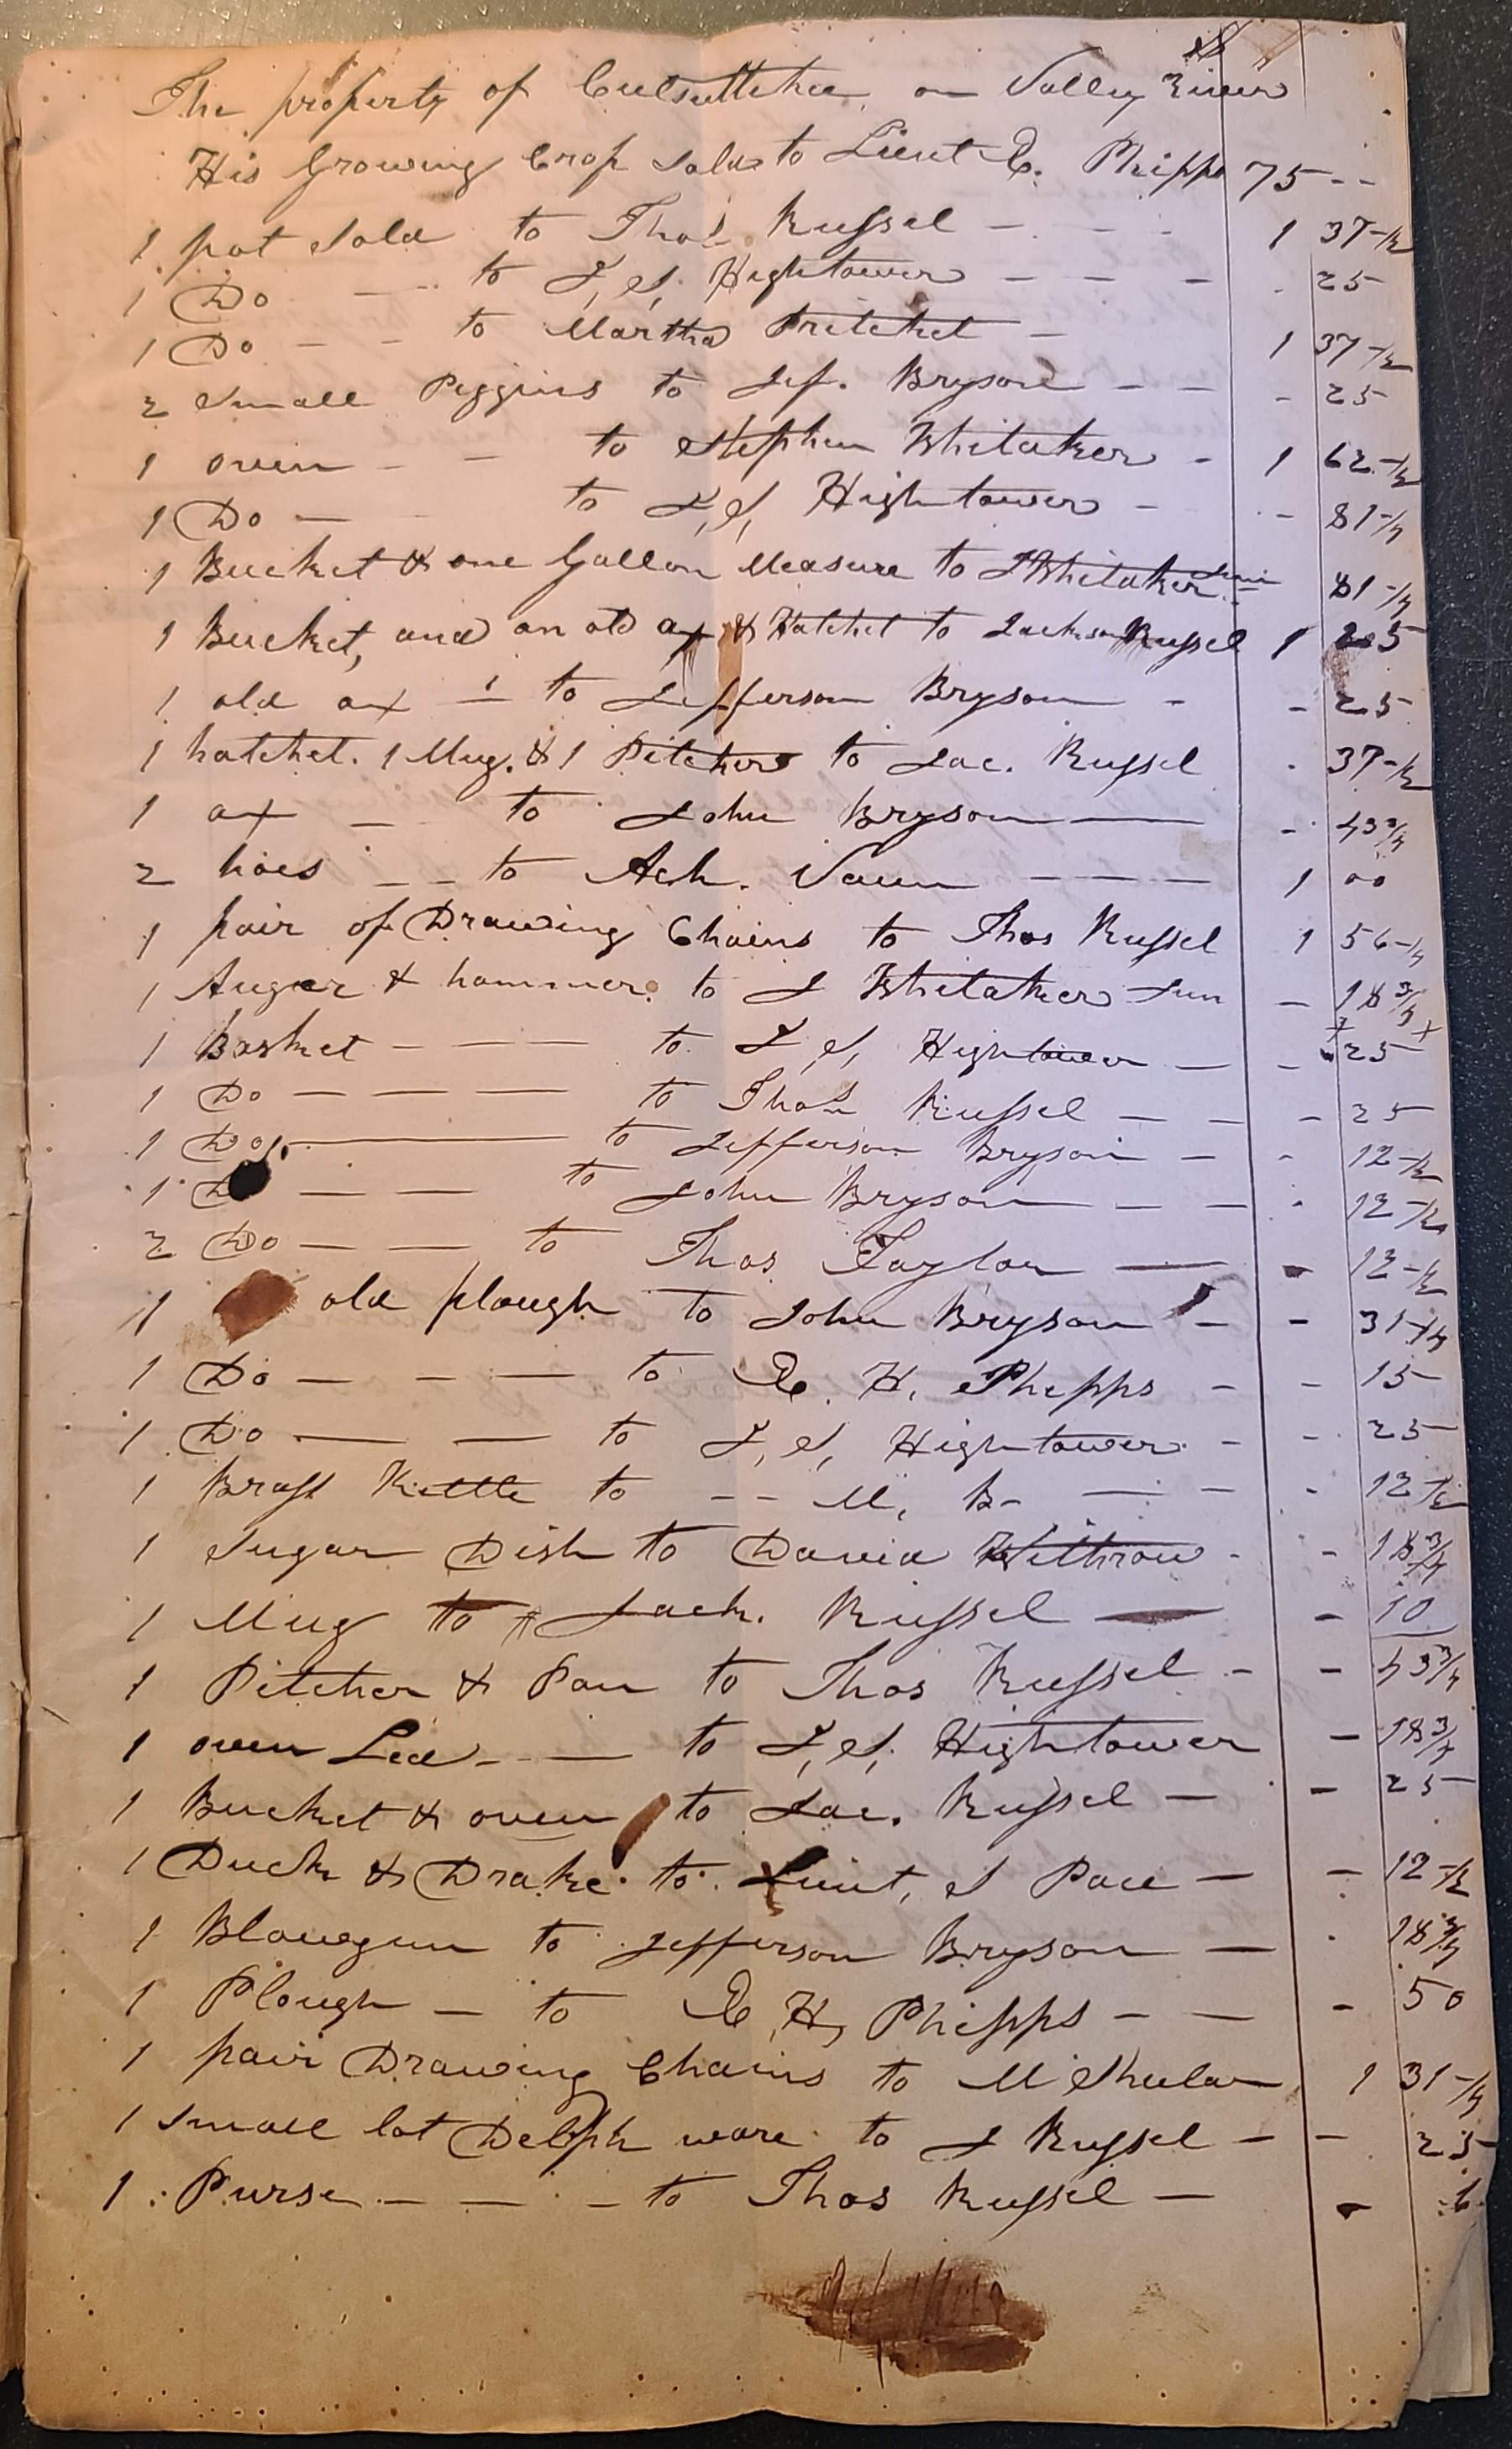 The property of Culsuttehee on Valley River
His Growing Crop Sold to Lieut E. Phipps 75 - -
1 pot Sold to Thos Russel - - - 1 37-1/2
1 Do - - to T, S, Hightower - - - - 25
1 Do - - to Martha Pritchet - 1 37-1/2
2 Small Piggins to Jef. Bryson - - - 25
1 oven - - to Stephen Whitaker - 1 62-1/2
1 Do - to T, S, Hightower - - 81-1/4
1 Bucket & one Gallon Measure to J Whitaker Juni - 81-1/4
1 Bucket, and an old ax & Hatchet to Jackson Russel 1 25
1 old ax - to Jefferson Bryson - - 25
1 hatchet. 1 Mug. & 1 Pitcher to Jac. Russel - 37-1/2
1 ax - to John Bryson - - 43 3/4
2 hoes - - to Ach. Vaun - - - 1 00
1 pair of Drawing Chains to Thos Russel 1 56-1/4
1 Auger & hammer. to J Whitaker Jun - 18 3/4
1 Basket - - - to T, S, Hightower - - 25
1 Do - - - - to Thos Russel - - - 25
1 Do, - to Jefferson Bryson - - 12-1/2
1 Do - - to John Bryson - - - 12-1/2
2 Do - - to Thos Taylor - - 12-1/2
1 old plough to John Bryson - - 31-1/4
1 Do - - - to E. H. Phipps - - 15
1 Do - - to T, S, Hightower - - 25
1 Brass Kettle to - - M, B- - - - 12-1/2
1 Sugar Dish to David Withrow - - 18 3/4
1 Mug to Jack. Russel - - 10
1 Pitcher & Pan to Thos Russel - - 43 3/4
1 oven Led - - to T, S, Hightower - 18 3/4
1 Bucket & oven to Jac. Russel - - 25
1 Duck & Drake to Lieut, S Pace - - 12-1/2
1 Blowgun to Jefferson Bryson - - 18 3/4
1 Plough - to E, H, Phipps - - - 50
1 pair Drawing Chains to M Shular 1 31-1/4
1 Small lot Delph ware to J Russel - - 25
1 Purse - - - to Thos Russel - - 6